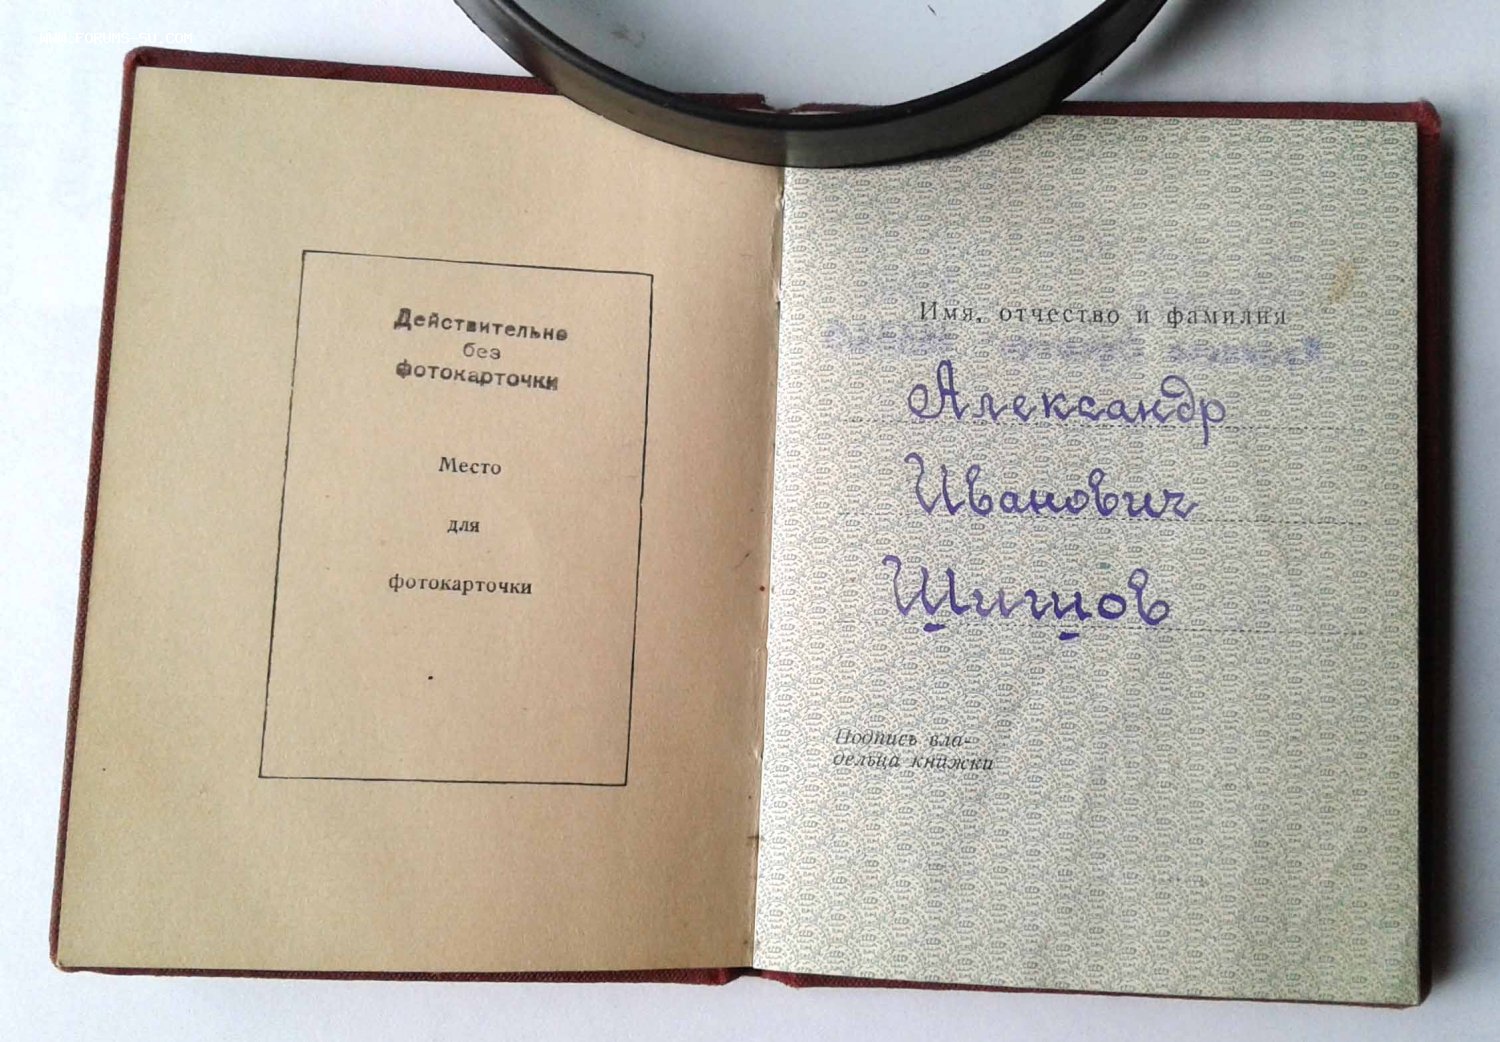 WWW.FORUMS-SU.COM
Действительно
без
фотокарточки
Место
для
фотокарточки
Имя, отчество и фамилия
Александр
Иванович
Шишов
Подпись вла-
дельца книжки